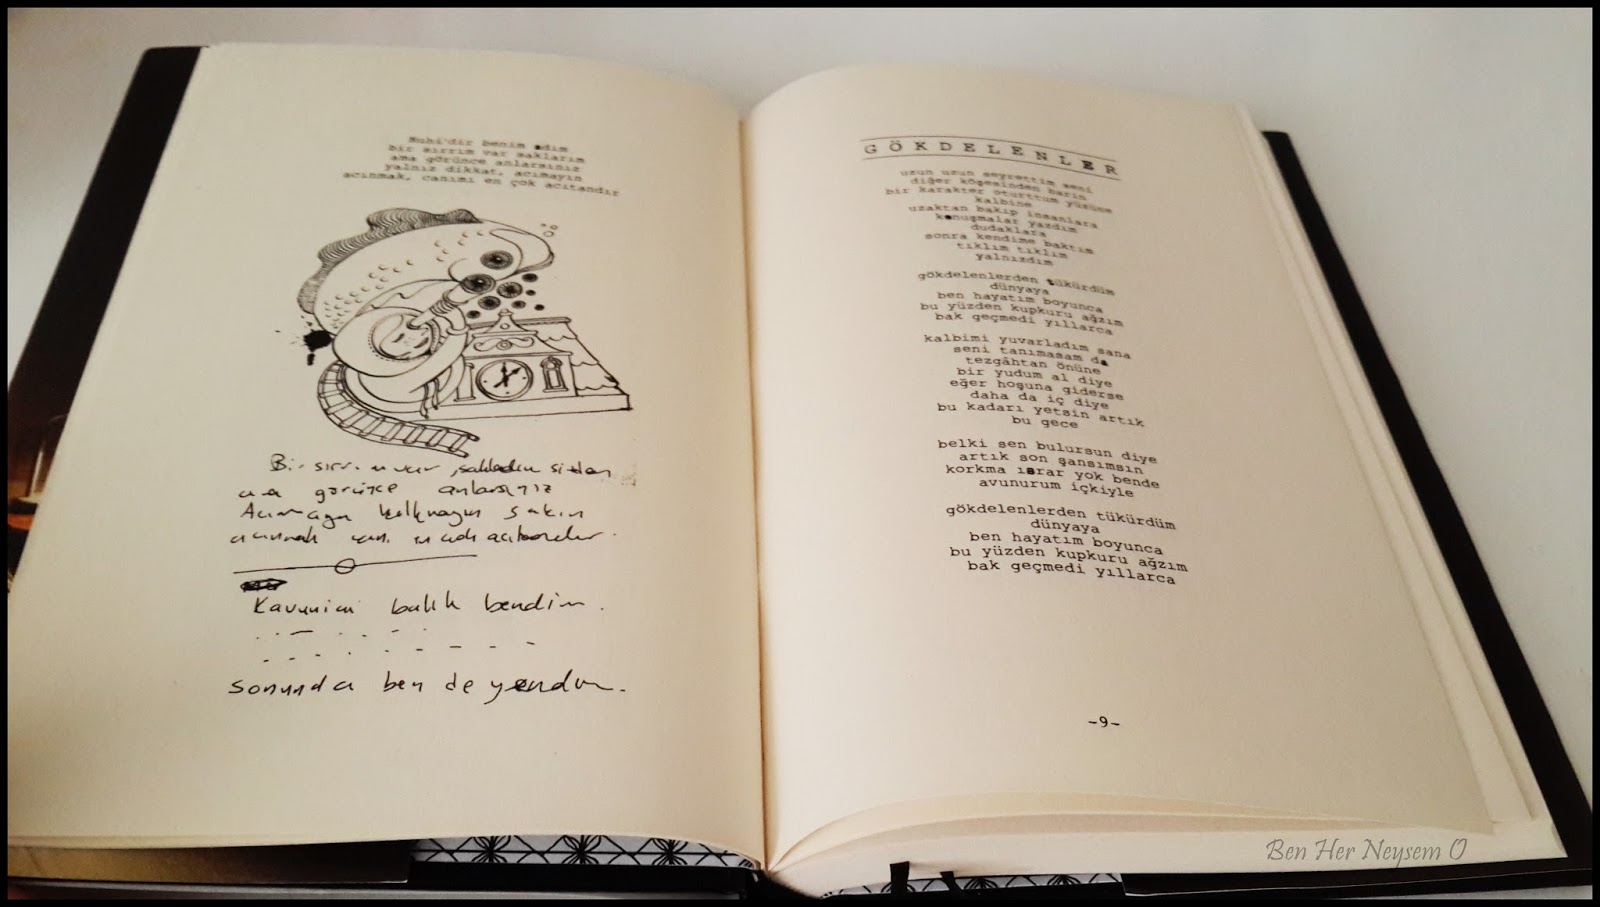 Nuhi'dir benim adım
bir sırrım var saklarım
ama görünce anlarsınız
yalnız dikkat, acımayın
acınmak, canımı en çok acıtandır
Bir sırrım var, sakladım sizden
ama görünce anlarsınız
Acımaya kalkmayın sakın
acınmak
Kavuniçi balık bendim.
sonunda ben de yendim.
GÖKDELENLER
uzun uzun seyrettim seni
diğer köşesinden barın
bir karakter oturttum yüzüne
kalbine
uzaktan bakıp insanlara
konuşmalar yazdım
dudaklara
sonra kendime baktım
tıklım tıklım
yalnızdım
gökdelenlerden tükürdüm
dünyaya
ben hayatım boyunca
bu yüzden kupkuru ağzım
bak geçmedi yıllarca
kalbimi yuvarladım sana
seni tanımasam da
tezgâhtan önüne
bir yudum al diye
eğer hoşuna giderse
daha da iç diye
bu kadarı yetsin artık
bu gece
belki sen bulursun diye
artık son şansımsın
korkma ısrar yok bende
avunurum içkiyle
gökdelenlerden tükürdüm
dünyaya
ben hayatım boyunca
bu yüzden kupkuru ağzım
bak geçmedi yıllarca
-9-
Ben Her Neysem O